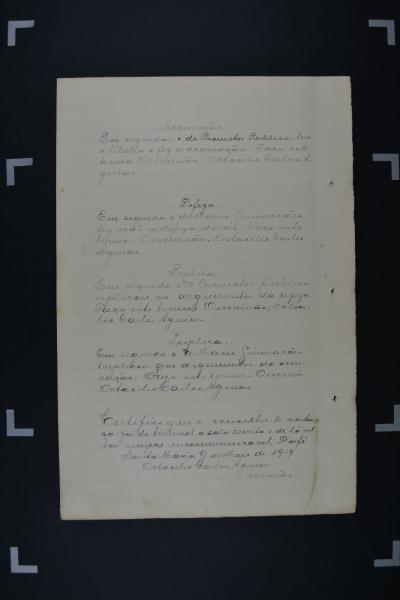 Accusação
Em seguida, o dr Promotor Publico, leu
o libello e fez a accusação. Faço este
termo. O escrivão, Octacilio Carlos A
guiar
Defeza
Em seguida o dr Mario Guimarães
fez oral a defeza do réo. Faço este
termo. O escrivão, Octacilio Carlos
Aguiar
Replica
Em seguida o Dr Promotor Publico
replicou os argumentos da defeza
Faço este termo. O escrivão, Octaci
lio Carlos Aguiar
Treplica
Em seguida o Dr Mario Guimarães
treplicou aos argumentos da accu
sação. Faço este termo. O escrivão
Octacilio Carlos Aguiar
Certifico que o conselho de
foi do tribunal a sala secreta e de lá
Dou fé
Santa Maria 9 de Maio de 1919
Octacilio Carlos Aguiar
escrivão